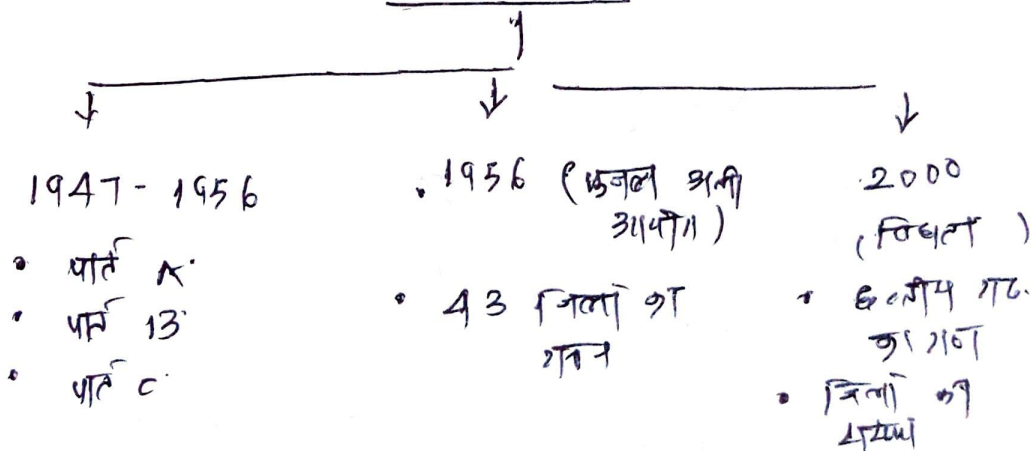 1947 - 1956
• पार्ट A.
• पार्ट B
• पार्ट C.
. 1956 (फजल अली
आयोग)
• 43 जिलों का
गठन
2000
(विघटन)
• छत्तीसगढ़
का गठन
• जिलों की
संख्या